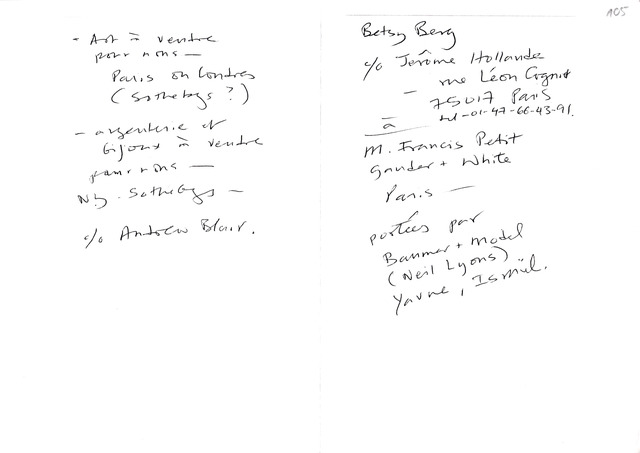 - Art à vendre
pour nous —
Paris ou Londres
(Sothebys ?)
- argenterie et
bijoux à vendre
pour nous —
NY. Sothebys —
c/o Andrew Blair.
105
Betsy Berg
c/o Jérôme Hollande
— rue Léon Cogniet
75017 Paris
tel-01-47-66-43-91.
à
M. Francis Petit
Gander + White
Paris —
portées par
+ Model
(Neil Lyons)
Yavne,